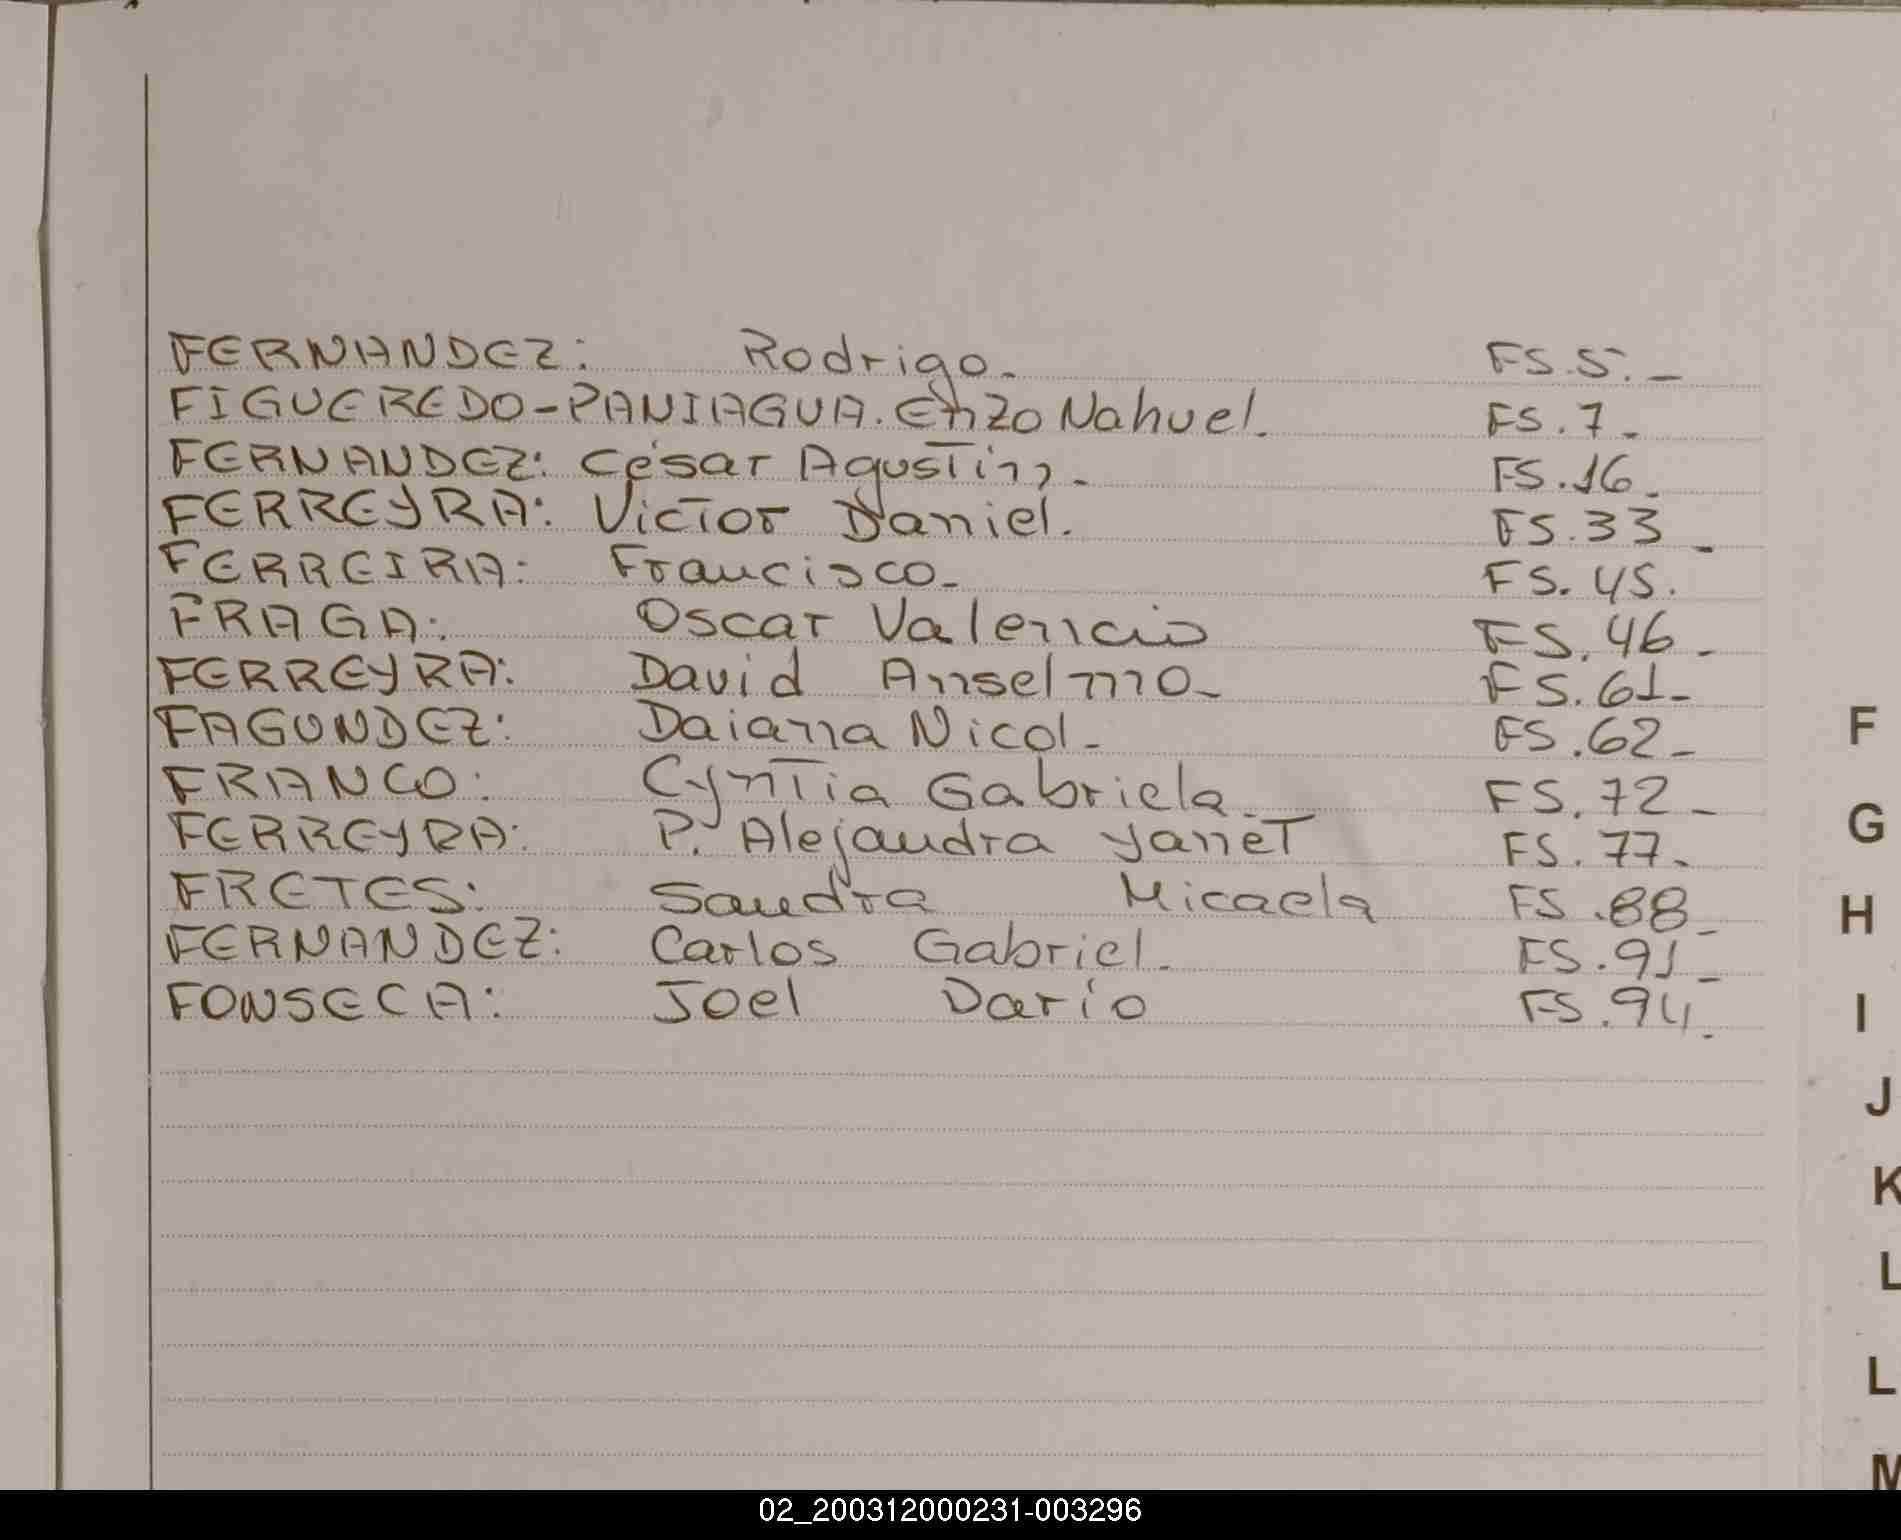 FERNANDEZ: Rodrigo. FS.5.-
FIGUEREDO-PANIAGUA. Enzo Nahuel. FS.7-
FERNANDEZ: César Agustin. FS.16.
FERREYRA: Victor Daniel. FS.33-
FERREIRA: Francisco- FS.45.
FRAGA: Oscar Valencio FS.46-
FERREYRA: David Anselmo- FS.61-
FAGUNDEZ: Daiana Nicol- FS.62-
FRANCO: Cyntia Gabriela FS.72-
FERREYRA: P. Alejandra Yanet FS.77.
FRETES: Sandra Micaela FS.88-
FERNANDEZ: Carlos Gabriel- FS.91-
FONSECA: Joel Dario FS.94.
F
G
H
I
J
K
L
L
M
02_200312000231-003296